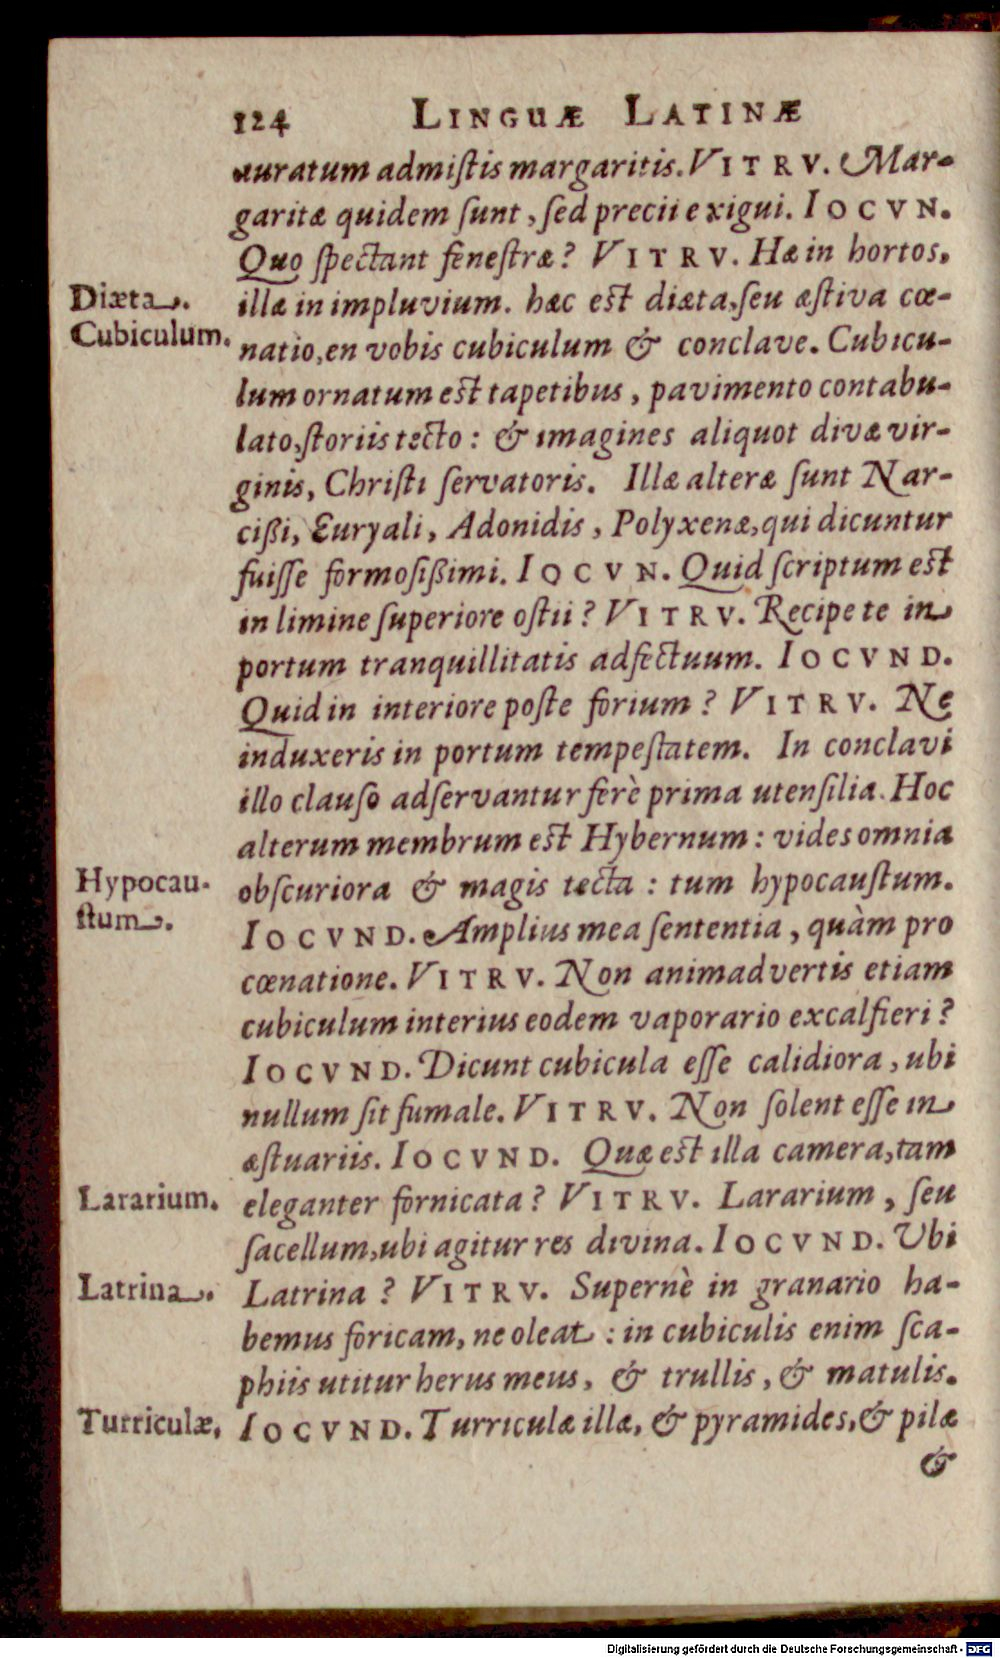 124 LINGUÆ LATINÆ
auratum admiſtis margaritis. VITRV. Mar-
garitæ quidem ſunt, ſed precii exigui. IOCVN.
Quo ſpectant feneſtræ? VITRV. Hæ in hortos,
Diæta.
illæ in impluvium. hæc eſt diæta, ſeu æſtiva cœ-
Cubiculum.
natio, en vobis cubiculum & conclave. Cubicu-
lum ornatum eſt tapetibus, pavimento contabu-
lato, ſtoriis tecto: & imagines aliquot divæ vir-
ginis, Chriſti ſervatoris. Illæ alteræ ſunt Nar-
cißi, Euryali, Adonidis, Polyxenæ, qui dicuntur
fuiſſe formoſißimi. IOCVN. Quid ſcriptum eſt
in limine ſuperiore oſtii? VITRV. Recipe te in
portum tranquillitatis adfectuum. IOCVND.
Quid in interiore poſte forium? VITRV. Ne
induxeris in portum tempeſtatem. In conclavi
illo clauſo adſervantur ferè prima utenſilia. Hoc
alterum membrum eſt Hybernum: vides omnia
Hypocau-
obſcuriora & magis tecta: tum hypocauſtum.
ſtum.
IOCVND. Amplius mea ſententia, quàm pro
cœnatione. VITRV. Non animadvertis etiam
cubiculum interius eodem vaporario excalfieri?
IOCVND. Dicunt cubicula eſſe calidiora, ubi
nullum ſit fumale. VITRV. Non ſolent eſſe in
æſtuariis. IOCVND. Quæ eſt illa camera, tam
Lararium.
eleganter fornicata? VITRV. Lararium, ſeu
ſacellum, ubi agitur res divina. IOCVND. Ubi
Latrina.
Latrina? VITRV. Supernè in granario ha-
bemus foricam, ne oleat: in cubiculis enim ſca-
phiis utitur herus meus, & trullis, & matulis.
Turriculæ,
IOCVND. Turriculæ illæ, & pyramides, & pilæ
&
Digitalisierung gefördert durch die Deutsche Forschungsgemeinschaft - DFG